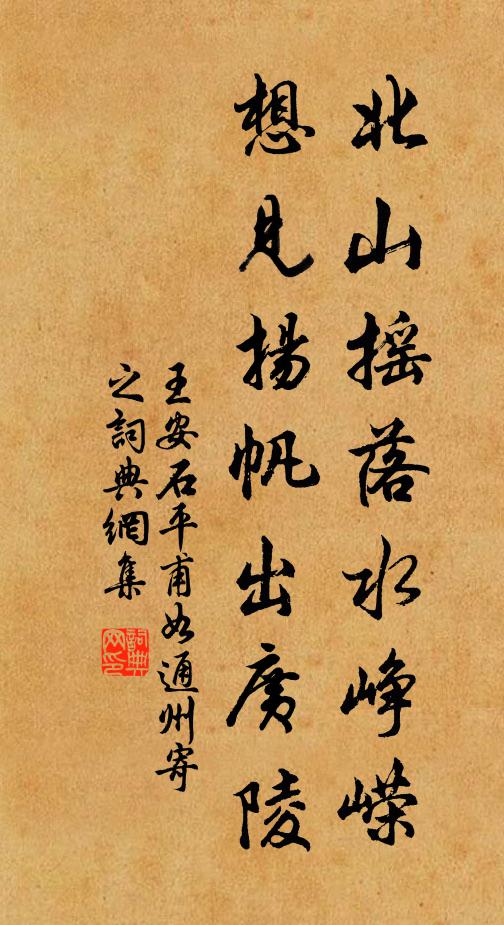 北山摇落水峥嵘
想见揚帆出廣陵
王安石平甫如通州寄
之詞典網集
詞典網印